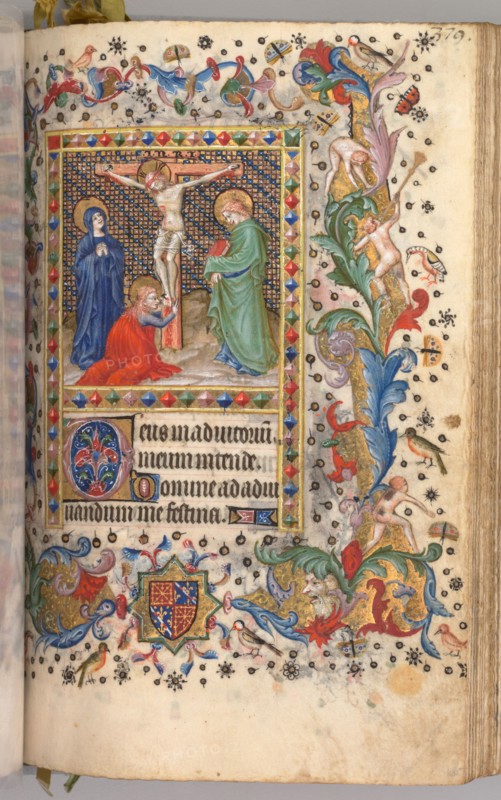 379.
Deus in adiutoriū.
meum intende.
Domine ad adiu
uandum me festina.
PHOTO
PHOTO